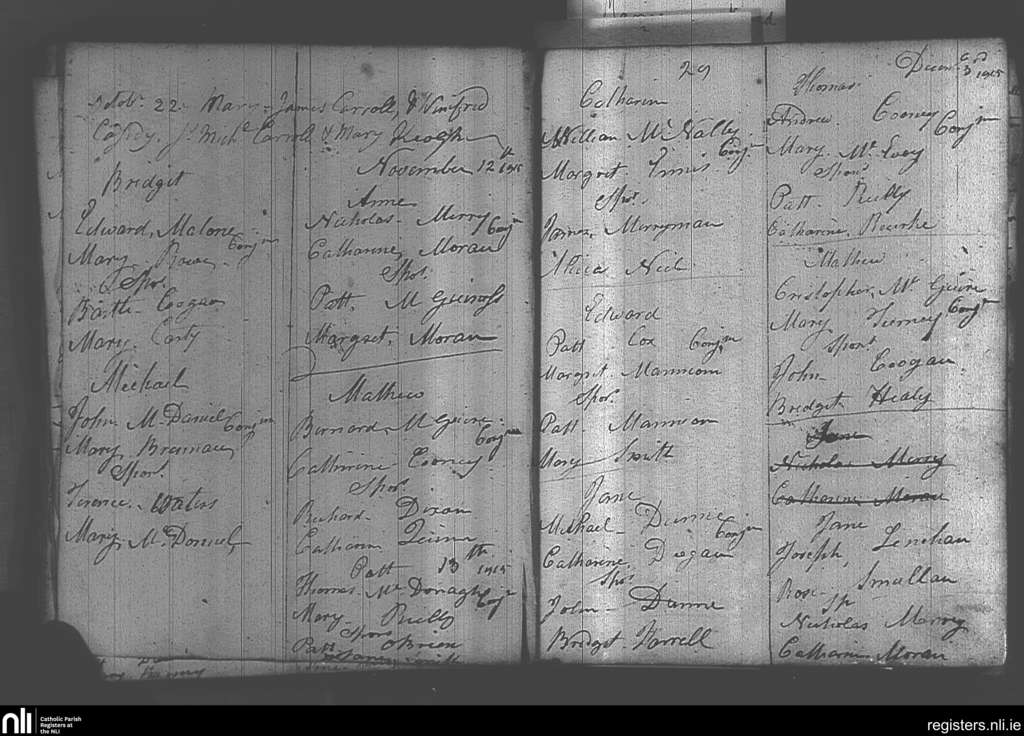 Octobr. 22. Mary - James Carroll, & Winifred
Cassidy. Michl. Carroll & Mary Keough
Bridget
Edward, Malone
Mary Conjm
Spor.
Bartle Coogan
Mary. Carty
Michael
John. McDaniel Conjm
Mary, Brennan
Spors.
Terence. Waters
Mary, McDonnel
November 12th
Anne
Nicholas - Merry Conjm
Catharine, Moran
Spor.
Patt. McGuiness
Margret, Moran
Mathew
Bernard, McGuire Conjm
Catharine Cooney
Spor.
Richard - Dixon
Catharine
Patt 13th
Thomas. McDonagh Conjm
Mary - Reilly
Spors
Patt O'Brien
29
Catharin
William McNally
Margret Ennis. Conjm
Spor.
James, Merryman
Alicia
Edward
Patt Cox Conjm
Margret. Mannion
Spor.
Patt. Mannion
Mary Smith
Jane
Michael - Dunne Conjm
Catharine, Degan
Spor
John - Dunne
Bridget. Farrell
Decem. 3
Thomas
Andrew. Cooney Conjm
Mary. McEvoy
Spors
Patt. Reilly
Catharine, Rourke
Mathew
Cristopher, McGuire
Mary Tierney Conjm
Spors
John - Coogan
Bridget Healy
Jane
Nicholas Merry
Catharine Moran
Jane
Joseph, Lenehan
Rose - Smullan
Sp
Nicholas Merry
Catharin Moran
nli
Catholic Parish
Registers at
the NLI
registers.nli.ie